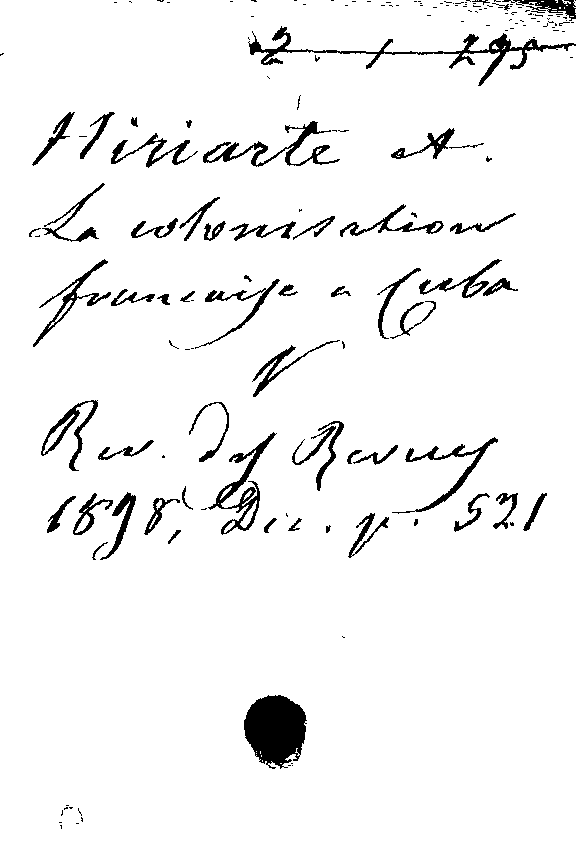 2. 1 295
Hiriarte A.
La colonisation
française a Cuba
V
Rev. des Revues
1898, Dec. p. 521